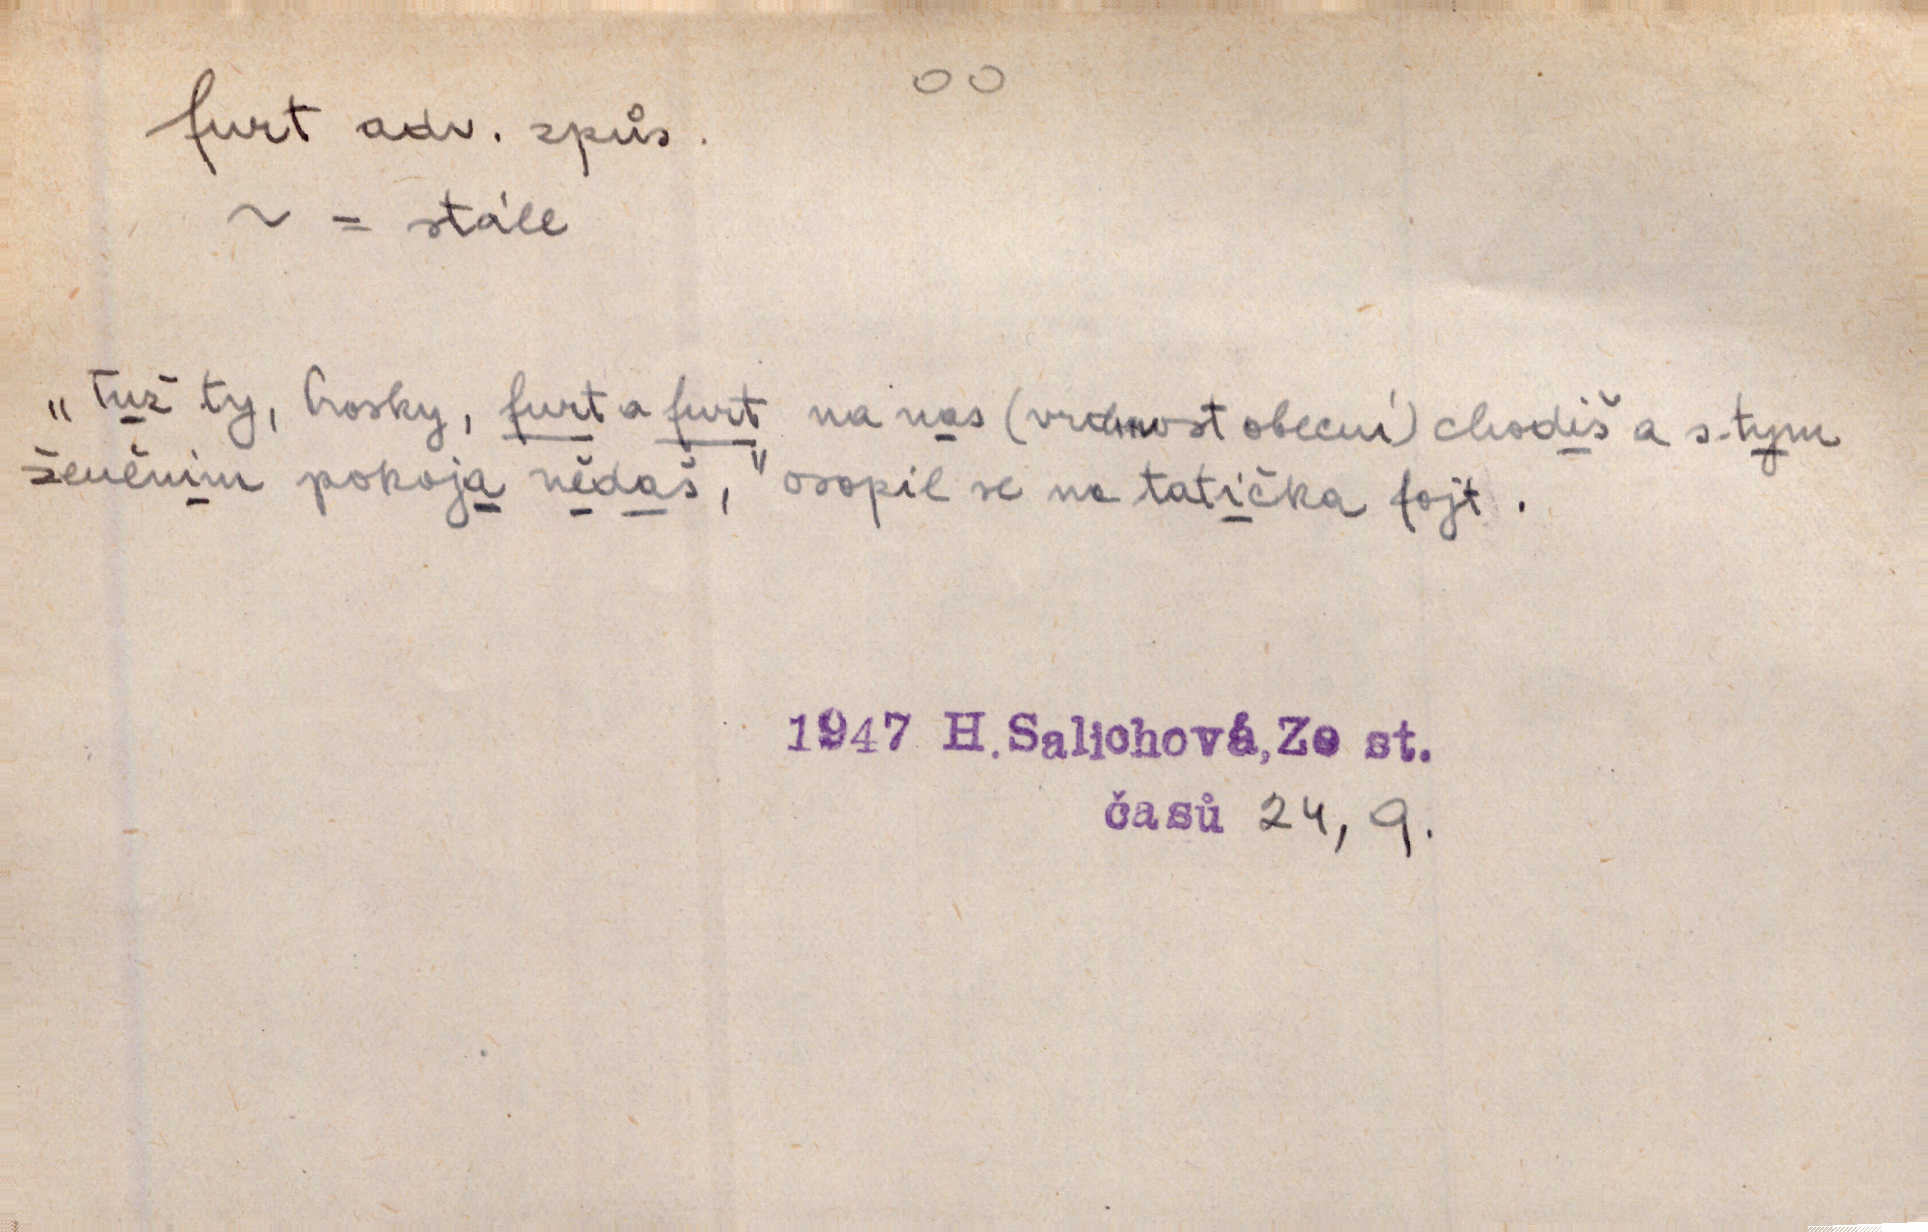 furt adv. způs.
~ = stále
„Tuž ty, hrosky, furt a furt na nas (vrchnost obecní) chodiš a s tym
ženěnim pokoja nědaš," osopil se na tatička fojt.
1947 H.Salichová,Ze st.
časů 24, 9.